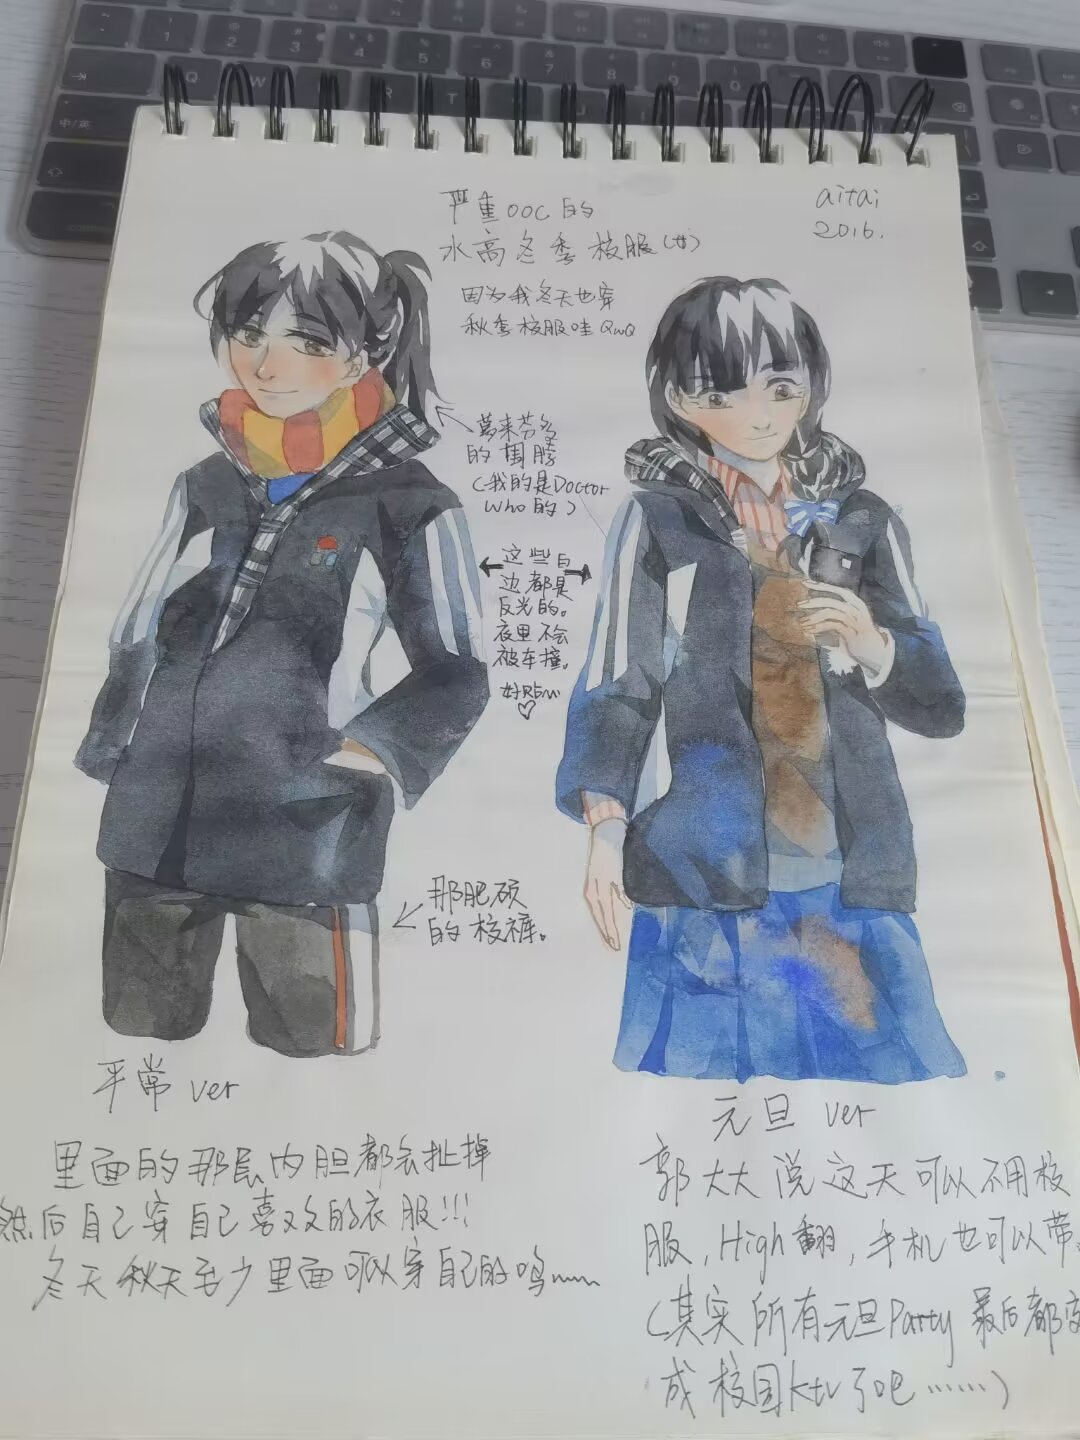 严重OOC的
水高冬季校服(女)
aitai
2016.
因为我冬天也穿
秋季校服哇QwQ
葛来芬多
的围脖
(我的是Doctor
Who的)
这些白
边都是
反光的。
夜里不会
被车撞。
好RBw
♡
那肥硕
的校裤。
平常 ver
里面的那层内胆都会扯掉
然后自己穿自己喜欢的衣服!!!
冬天秋天至少里面可以穿自己的呜~~
元旦 ver
郭大大说这天可以不用校
服,High翻,手机也可以带。
(其实所有元旦Party最后都变
成校园ktv了吧……)
中/英
Q
W
R
T